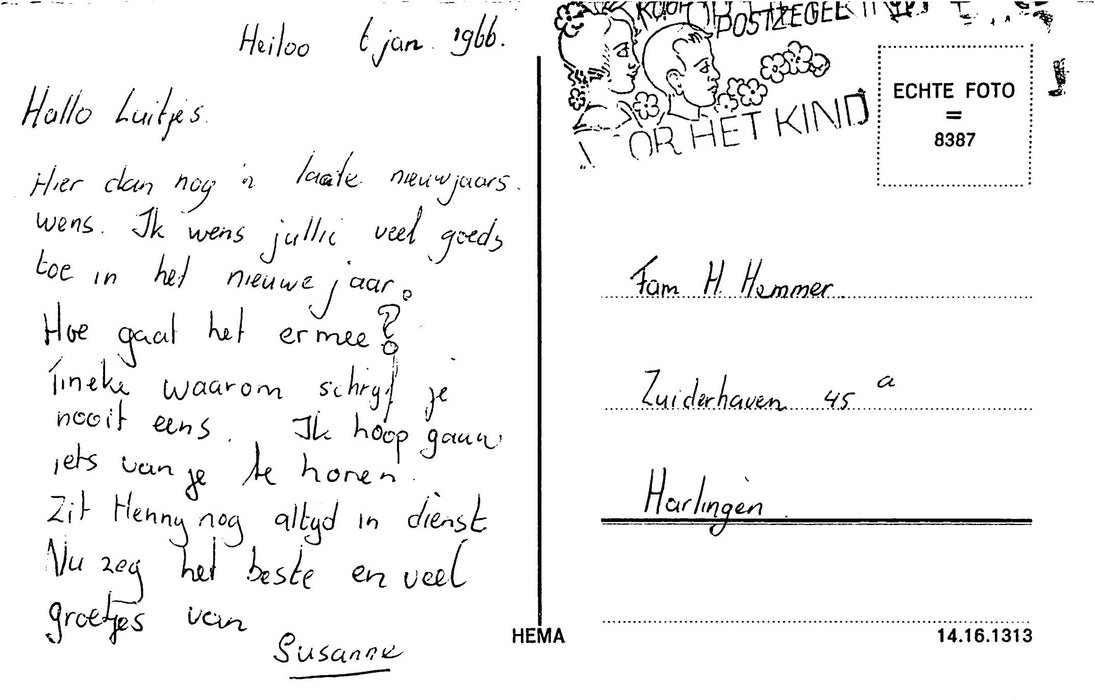 Heiloo 6 jan. 1966.
Hallo Luitjes.
Hier dan nog 'n laate nieuwjaars.
wens. Ik wens jullie veel goeds
toe in het nieuwe jaar.
Hoe gaat het ermee?
Tineke waarom schrijf je
nooit eens. Ik hoop gauw
iets van je te horen.
Zit Henny nog altyd in dienst
Nu zeg het beste en veel
groetjes van
Susanne
POSTZEGEL
OR HET KIND
ECHTE FOTO
=
8387
Fam H. Hammer.
Zuiderhaven 45 a
Harlingen.
HEMA
14.16.1313